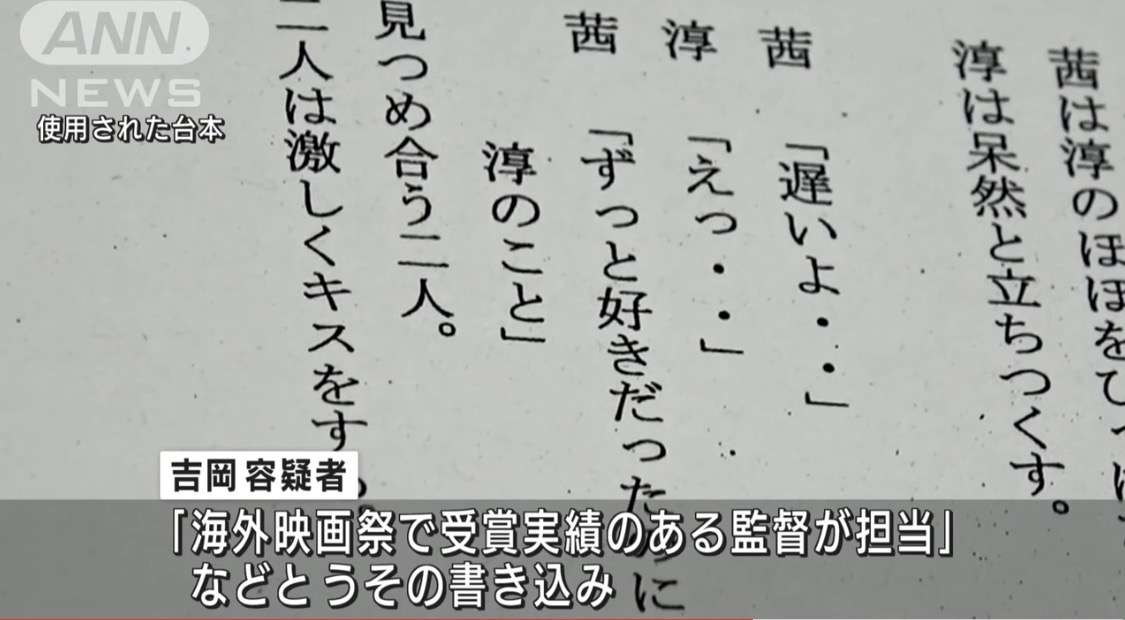 ANN
NEWS
使用された台本
茜は淳のほほをひっ
淳は呆然と立ちつくす。
茜　「遅いよ・・」
淳　「えっ・・」
茜　「ずっと好きだったのに
淳のこと」
見つめ合う二人。
二人は激しくキスをする。
吉岡 容疑者
「海外映画祭で受賞実績のある監督が担当」
などとうその書き込み